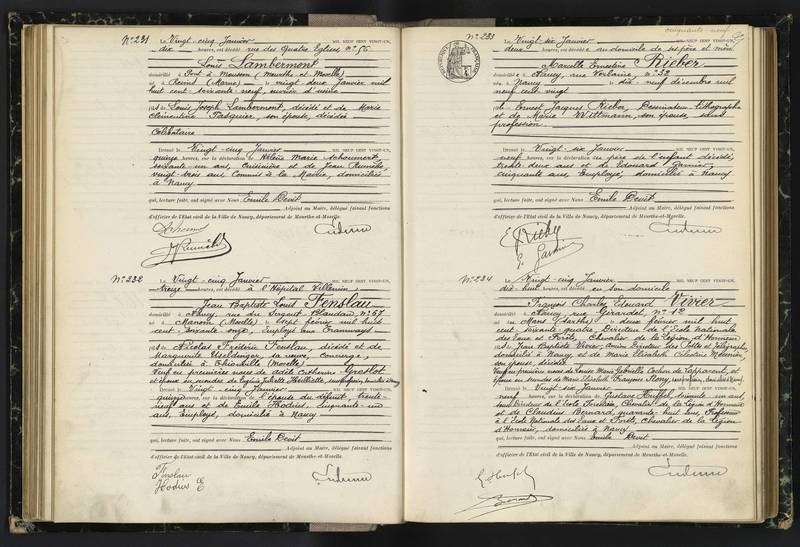 N° 231 Le Vingt-cinq Janvier MIL NEUF CENT VINGT-UN,
dix heures, est décédé rue des Quatre Eglises, n° 56
Louis Lambermont
domicilié à Pont à Mousson (Meurthe et Moselle)
né à (Marne) le vingt deux Janvier mil
huit cent soixante-neuf, ouvrier d'usine
fils de Louis Joseph Lambermont, décédé et de Marie
Clémentine Pasquier, son épouse, décédée
Célibataire
Dressé le Vingt-cinq Janvier MIL NEUF CENT VINGT-UN,
quinze heures, sur la déclaration de Marie
soixante-un ans, Cuisinière et de Jean
vingt-trois ans, Commis à la Mairie, domiciliés
à Nancy
qui, lecture faite, ont signé avec Nous Emile Devit
Adjoint au Maire, délégué faisant fonctions
d'officier de l'Etat civil de la Ville de Nancy, département de Meurthe-et-Moselle.
N° 232 Le Vingt-cinq Janvier MIL NEUF CENT VINGT-UN,
treize heures, est décédé à l'Hôpital Villemin,
Jean Baptiste Louis Fenslau
domicilié à Nancy, rue du Sergent Blandan, n° 67
né à Manom (Moselle) le sept février mil huit
cent soixante-onze, Employé aux Tramways
fils de Nicolas Frédéric Fenslau, décédé et de
Marguerite sa veuve, Concierge,
domiciliée à Thionville (Moselle)
Veuf en premières noces de Adèle Catherine
et époux en secondes de Eugénie Juliette
Dressé le Vingt-cinq Janvier MIL NEUF CENT VINGT-UN,
quinze heures, sur la déclaration de l'épouse du défunt, trente-
neuf ans et de Emile Hodius, cinquante-un
ans, Employé, domiciliés à Nancy
qui, lecture faite, ont signé avec Nous Emile Devit
Adjoint au Maire, délégué faisant fonctions
d'officier de l'Etat civil de la Ville de Nancy, département de Meurthe-et-Moselle.
Fenslau
Hodius E
cinquante-neuf
N° 233 Le Vingt-six Janvier MIL NEUF CENT VINGT-UN,
deux heures, est décédée au domicile de ses père et mère
Marcelle Ernestine Rieber
domiciliée à Nancy, rue Verlaine, n° 32
née à Nancy le dix-neuf décembre mil
neuf cent vingt
fille de Ernest Jacques Rieber, Dessinateur lithographe
et de Marie Wittmann, son épouse, sans
profession
Dressé le Vingt-six Janvier MIL NEUF CENT VINGT-UN,
neuf heures, sur la déclaration du père de l'enfant décédée,
trente-deux ans et de Edouard Garnier,
cinquante ans, Employé, domiciliés à Nancy
qui, lecture faite, ont signé avec Nous Emile Devit
Adjoint au Maire, délégué faisant fonctions
d'officier de l'Etat civil de la Ville de Nancy, département de Meurthe-et-Moselle.
N° 234 Le Vingt-cinq Janvier MIL NEUF CENT VINGT-UN,
dix-huit heures, est décédé en son domicile
François Charles Edouard Vivier
domicilié à Nancy, rue Girardet, n° 12
né au Mans (Sarthe) le deux février mil huit
cent soixante-quatre, Directeur de l'Ecole Nationale
des Eaux et Forêts, Chevalier de la Légion d'Honneur
fils de Jean Baptiste Vivier, ancien Directeur des Postes et Télégraphes,
domicilié à Nancy et de Marie Elisabeth Célestine
son épouse, décédée
Veuf en premières noces de Louise Marie Gabrielle Cochon de Lapparent, et
époux en secondes de Marie Elisabeth Françoise
Dressé le Vingt-six Janvier MIL NEUF CENT VINGT-UN,
neuf heures, sur la déclaration de Gustave Huffel, soixante-un ans,
Directeur de l'Ecole Forestière, Chevalier de la Légion d'Honneur
et de Claudius Bernard, quarante-huit ans, Professeur
à l'Ecole Nationale des Eaux et Forêts, Chevalier de la Légion
d'Honneur, domiciliés à Nancy
qui, lecture faite, ont signé avec Nous Emile Devit
Adjoint au Maire, délégué faisant fonctions
d'officier de l'Etat civil de la Ville de Nancy, département de Meurthe-et-Moselle.